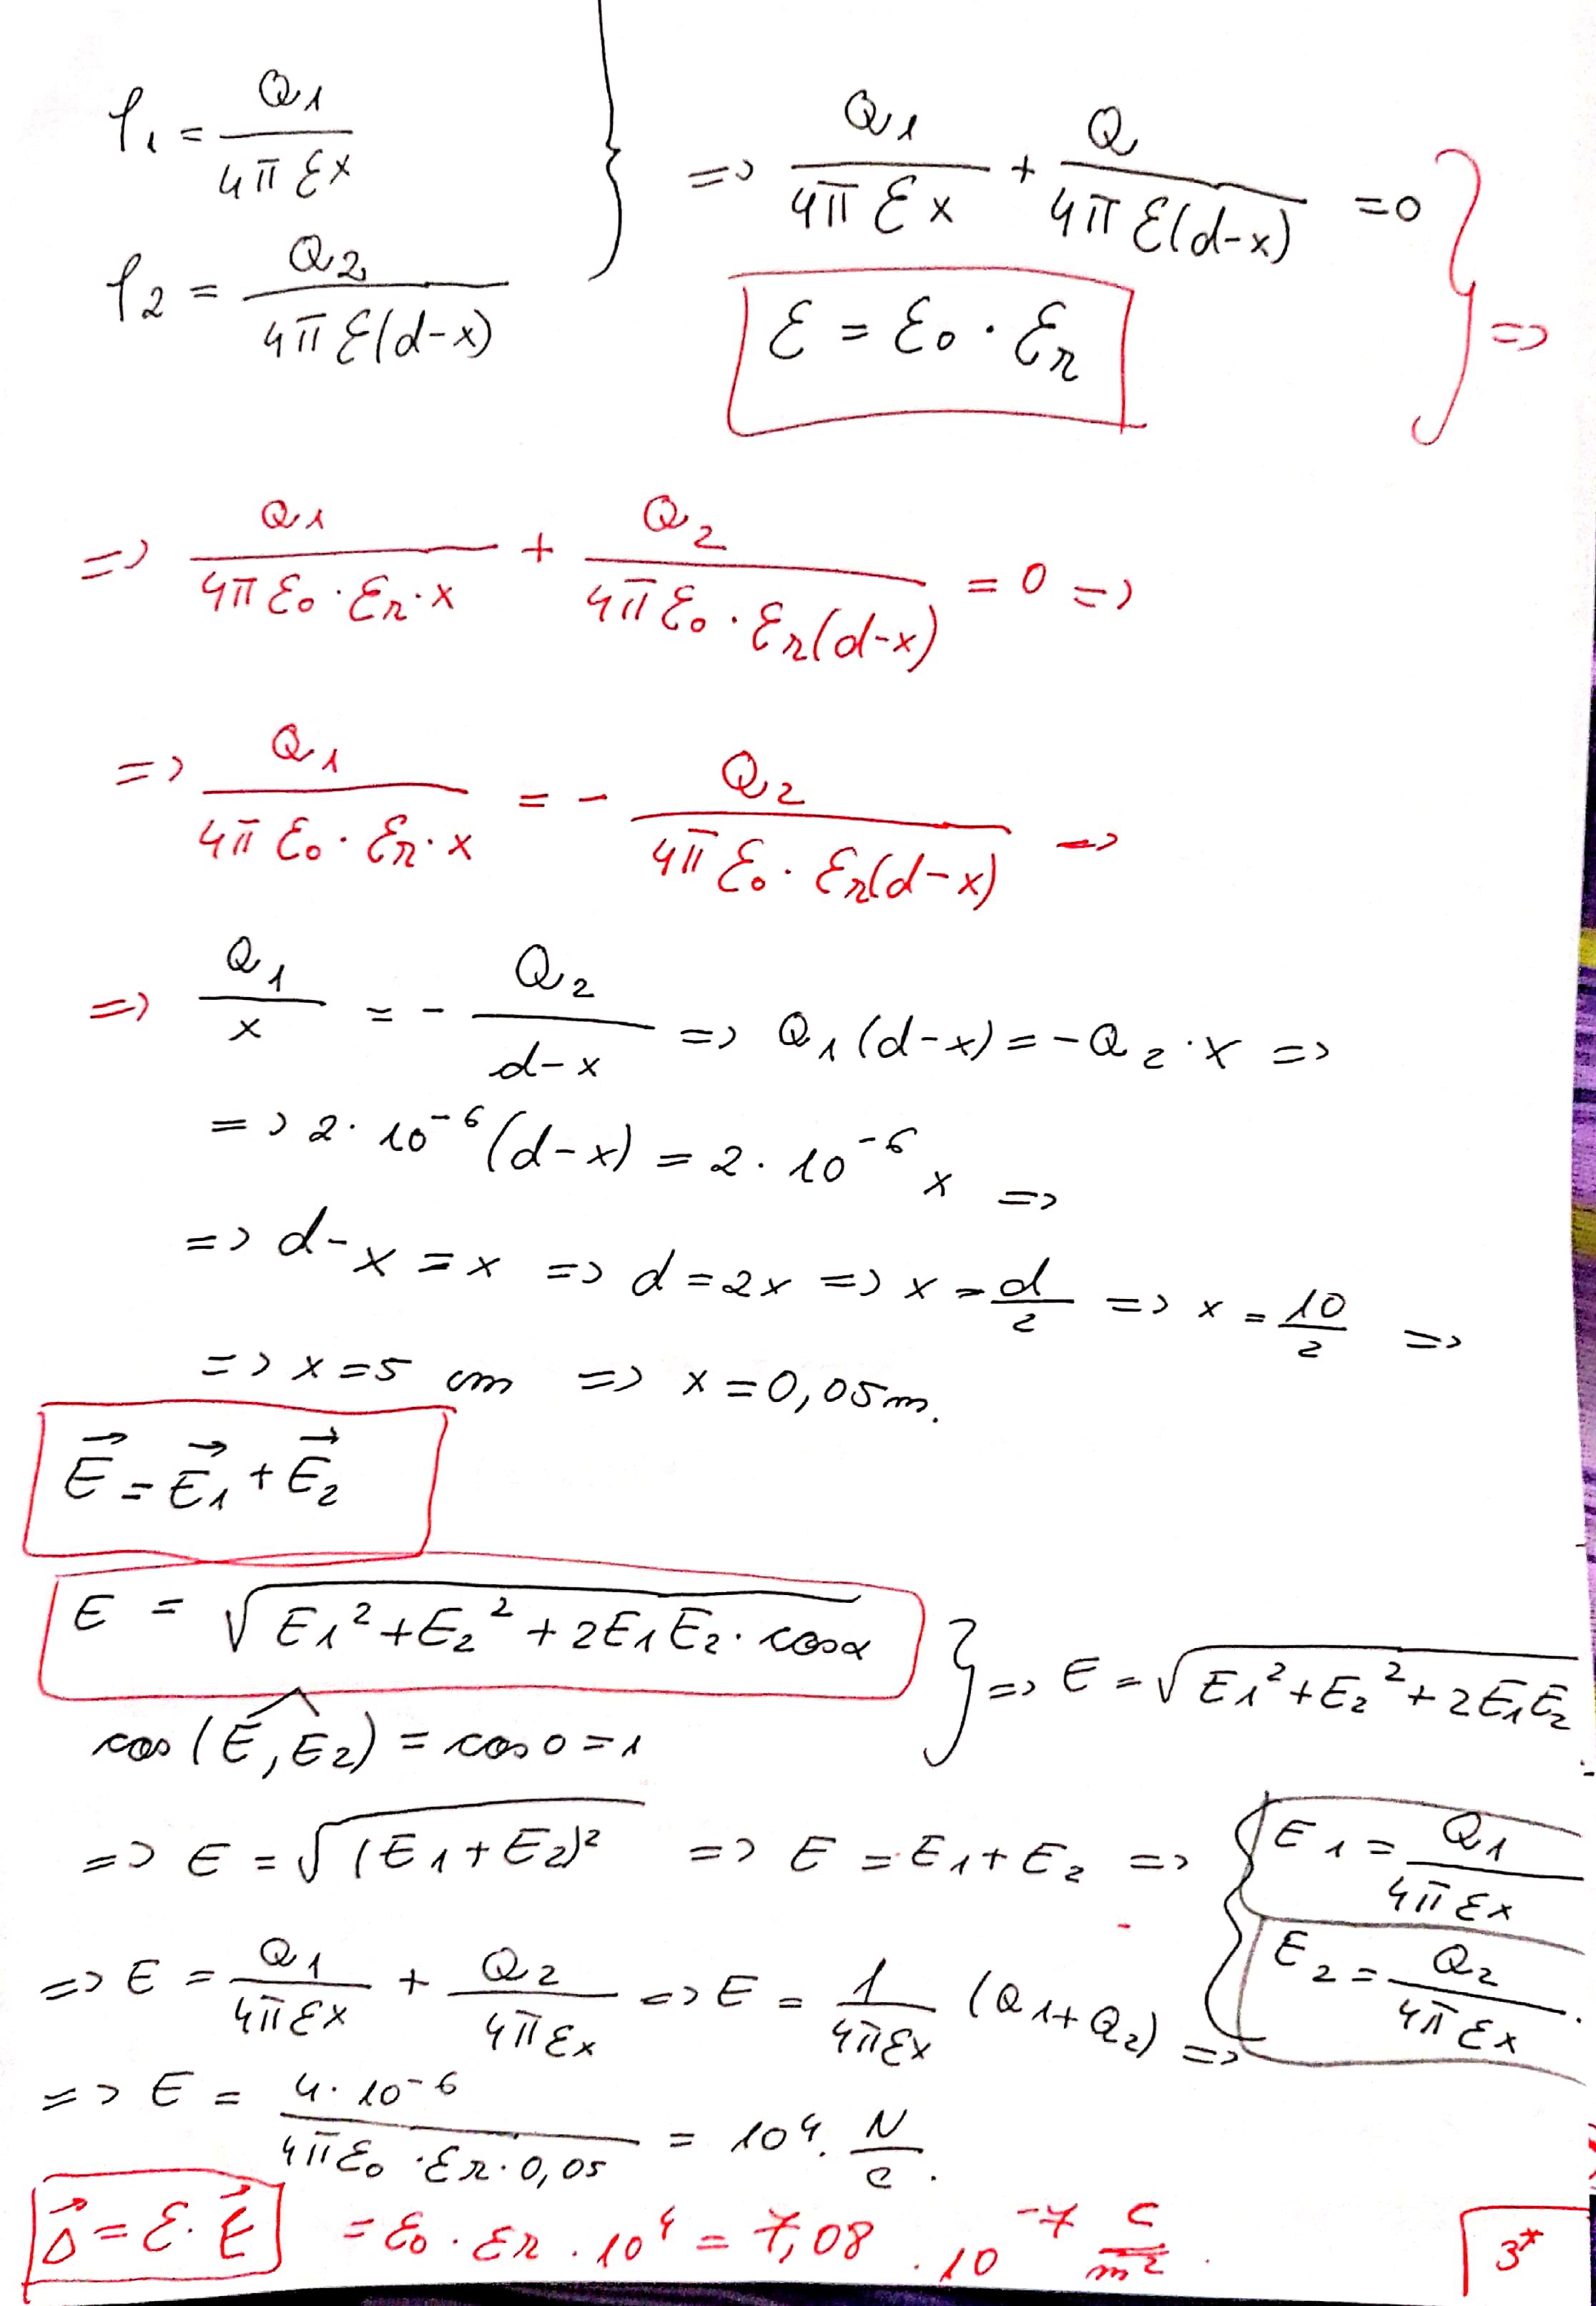 φ₁ = Q₁/(4π ε x) } => Q₁/(4π ε x) + Q/(4π ε(d-x)) = 0 } =>
φ₂ = Q₂/(4π ε(d-x))
ε = ε₀ · εr
=> Q₁/(4π ε₀ · εr · x) + Q₂/(4π ε₀ · εr(d-x)) = 0 =>
=> Q₁/(4π ε₀ · εr · x) = - Q₂/(4π ε₀ · εr(d-x)) =>
=> Q₁/x = - Q₂/(d-x) => Q₁(d-x) = -Q₂ · x =>
=> 2 · 10⁻⁶(d-x) = 2 · 10⁻⁶ x =>
=> d-x = x => d = 2x => x = d/2 => x = 10/2 =>
=> x = 5 cm => x = 0,05 m.
E⃗ = E⃗₁ + E⃗₂
E = √(E₁² + E₂² + 2E₁E₂ · cosα) } => E = √(E₁² + E₂² + 2E₁E₂)
cos(E, E₂) = cos 0 = 1
=> E = √((E₁+E₂)²) => E = E₁ + E₂ => { E₁ = Q₁/(4π ε x)
E₂ = Q₂/(4π ε x).
=> E = Q₁/(4π ε x) + Q₂/(4π ε x) => E = 1/(4π ε x) (Q₁+Q₂) =>
=> E = 4 · 10⁻⁶/(4π ε₀ · εr · 0,05) = 10⁴ · N/C.
D⃗ = ε · E⃗ = ε₀ · εr · 10⁴ = 7,08 · 10⁻⁷ C/m².
3*